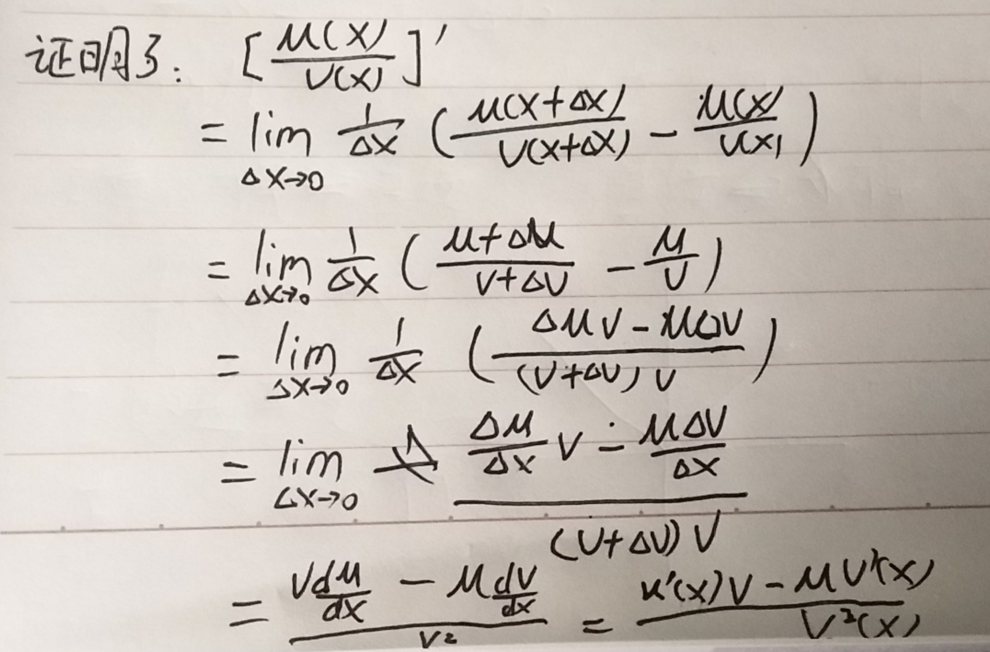 证明3: [u(x)/v(x)]'
= lim Δx→0 1/Δx (u(x+Δx)/v(x+Δx) − u(x)/v(x))
= lim Δx→0 1/Δx (u+Δu/v+Δv − u/v)
= lim Δx→0 1/Δx (Δuv − uΔv/(v+Δv)v)
= lim Δx→0 Δu/Δx v − uΔv/Δx/(v+Δv)v
= v du/dx − u dv/dx/v² = u'(x)v − uv'(x)/v²(x)